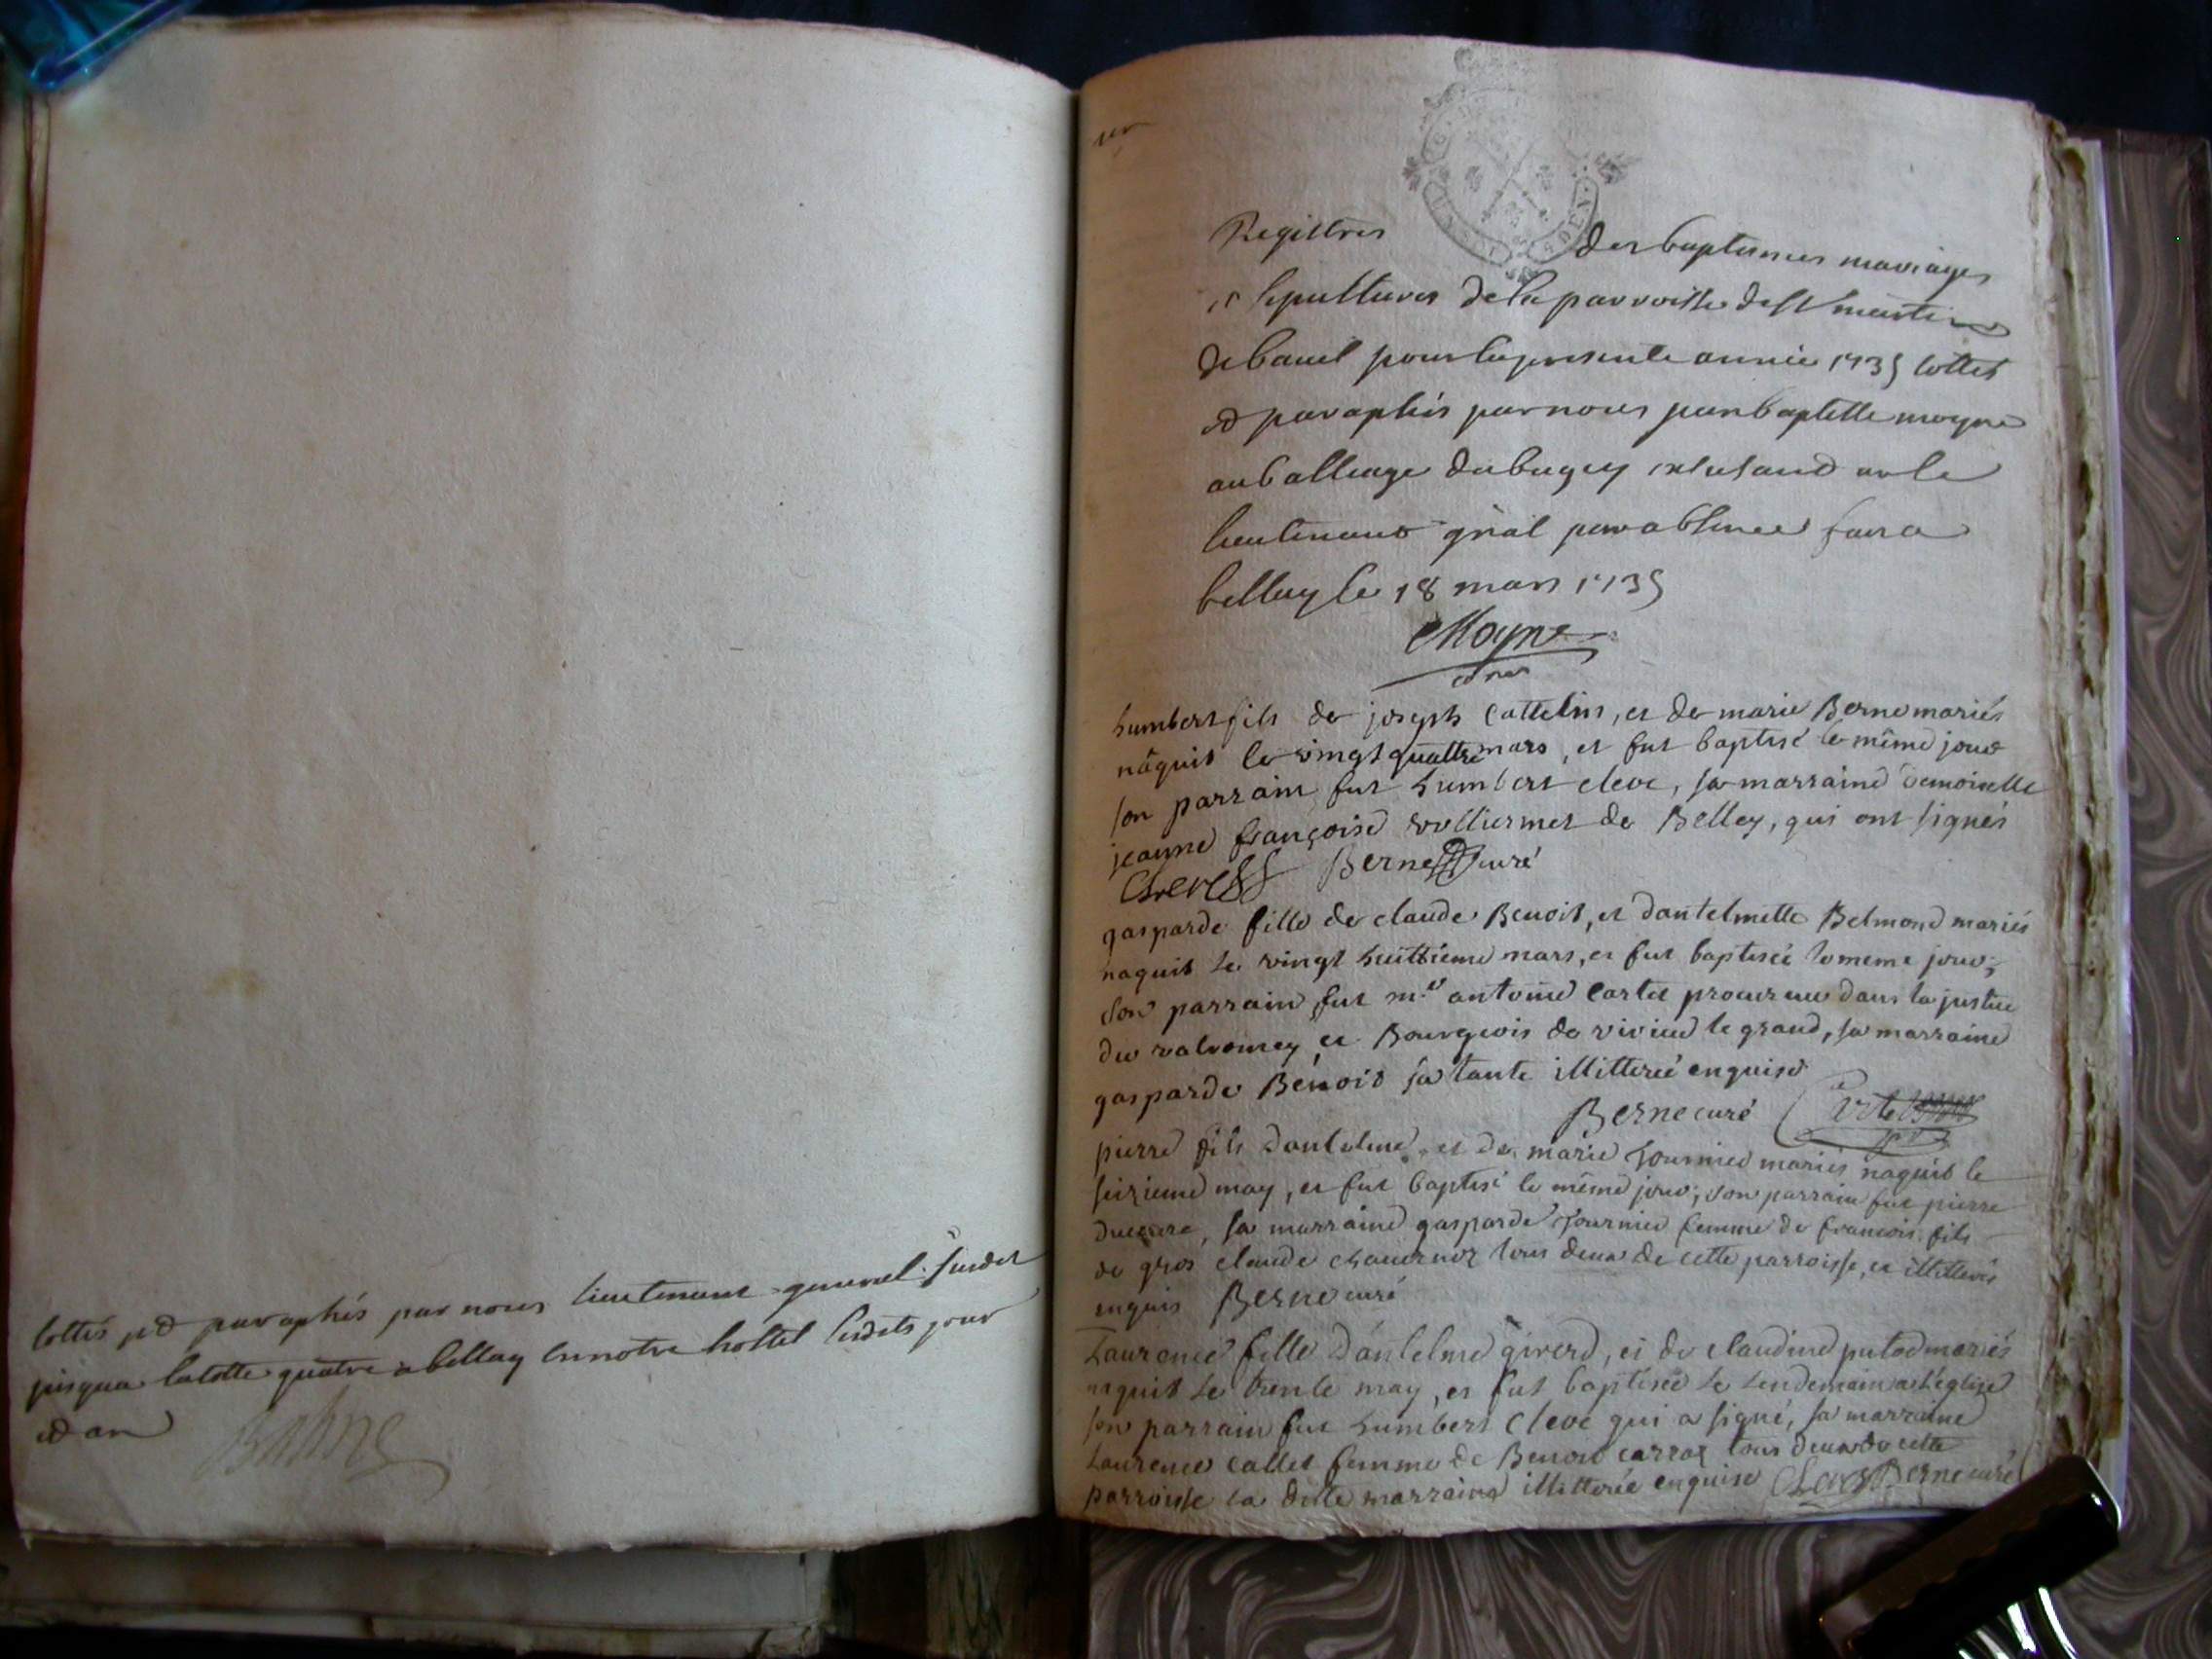 cottés et paraphés par nous lieutenant general susdit
jusqua la cotte quatre a bellay en notre hostel lesdits jour
et an
1er
Registres des baptesmes mariages
et sepultures de la parroisse de st martin
de bavel pour la presente année 1735 cottés
et paraphés par nous jean baptiste moyne
au balliage du bugey
lieutenant gñal par absence fait a
bellay le 18 mars 1735
Moyne
humbert fils de joseph Cattelin, et de marie Berne mariés
nâquit le vingt quattre mars, et fut baptisé le même jour
son parrain fut humbert cleve, sa marraine demoiselle
jeanne françoise vulliermet de Belley, qui ont signés
Cleve Berne curé
gasparde fille de claude Benoit, et dantelmette Belmond mariés
naquit le vingt huittieme mars, et fut baptisée le meme jour;
son parrain fut m.e antoine Cartet procureur dans la justice
du valromey et Bourgeois de vivieu le grand, sa marraine
gasparde Benoit sa tante illitterée enquise
Berne curé Cartet
pierre fils dantelme et de marie fournier mariés naquit le
seizieme may, et fut baptisé le même jour; son parrain fut pierre
ducurre, sa marraine gasparde fournier femme de francois fils
de gros claude tous deux de cette parroisse, et illitterés
enquis Berne curé
Laurence fille dantelme girerd, et de claudine putod mariés
naquit le trente may, et fut baptisée le lendemain a l'eglise
son parrain fut humbert Cleve qui a signé, sa marraine
Laurence callet femme de Benoit carraz tous deux de cette
parroisse la dite marraine illitterée enquise Cleve Berne curé